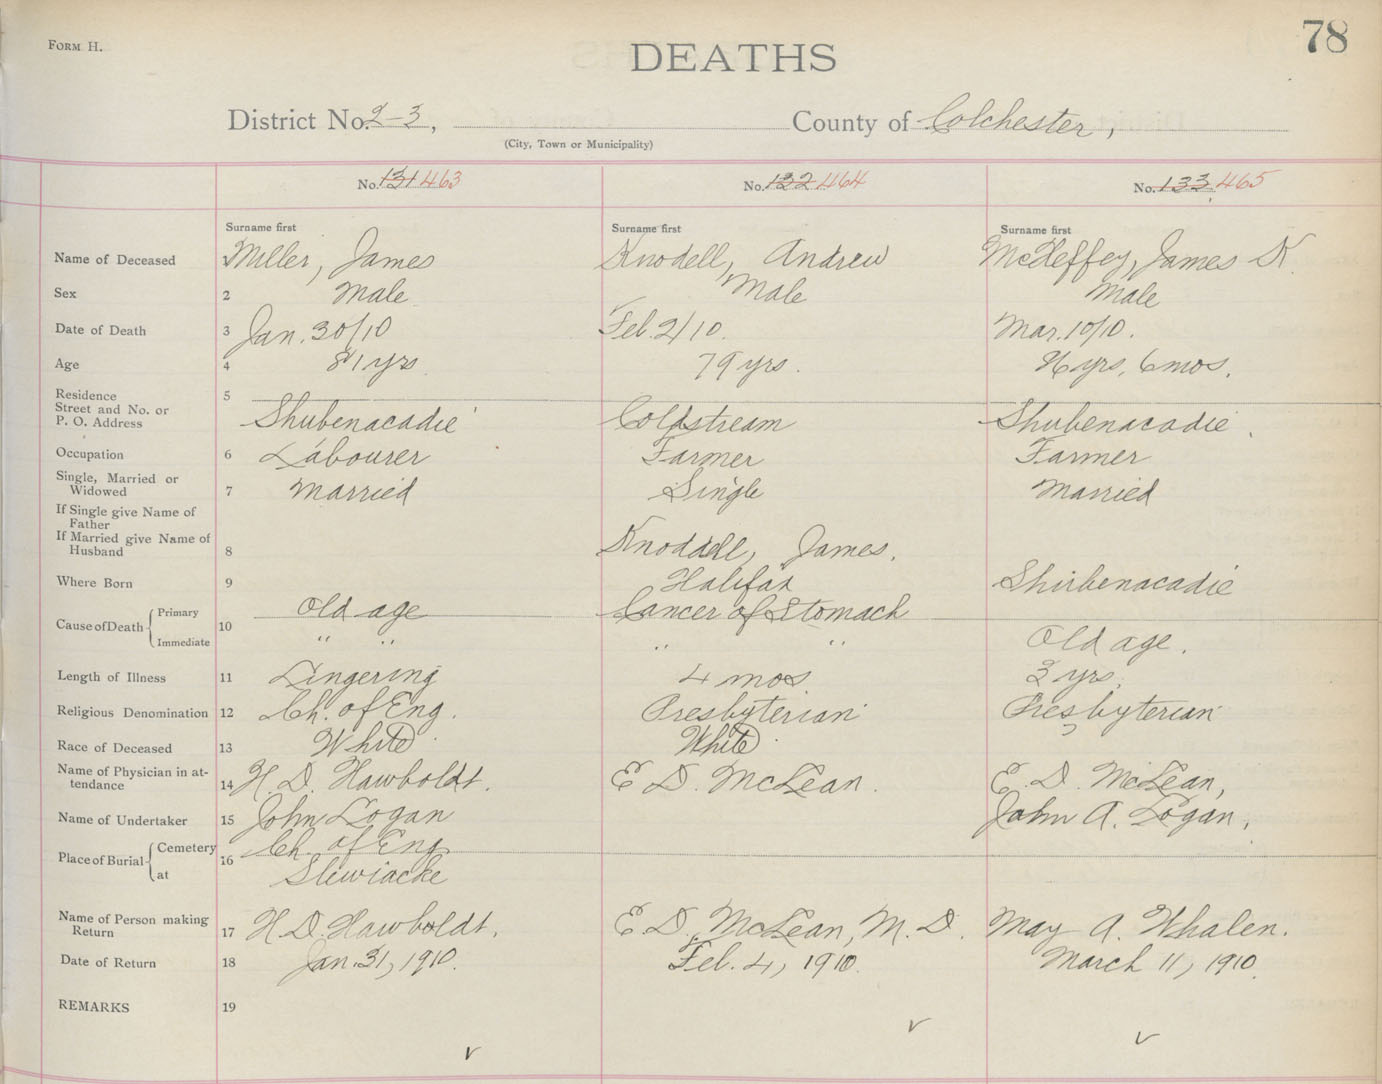 78
FORM H.
DEATHS
District No. 2-3,
County of Colchester,
(City, Town or Municipality)
No. 131 463
No. 132 464
No. 133 465
Surname first
Surname first
Surname first
Name of Deceased 1 Miller, James
Knodell, Andrew
McHeffey, James K.
Sex 2 Male
Male
Male
Date of Death 3 Jan. 30/10
Feb. 2/10.
Mar. 10/10.
Age 4 81 yrs
79 yrs.
yrs, 6 mos.
Residence 5
Street and No. or
P. O. Address Shubenacadie
Coldstream
Shubenacadie
Occupation 6 Labourer
Farmer
Farmer
Single, Married or
Widowed 7 Married
Single
Married
If Single give Name of
Father
If Married give Name of
Husband 8
Knoddell, James.
Where Born 9
Halifax
Shubenacadie
Cause of Death Primary 10 Old age
Cancer of Stomach
Immediate " "
" "
Old age.
Length of Illness 11 Lingering
4 mos
3 yrs.
Religious Denomination 12 Ch. of Eng.
Presbyterian
Presbyterian
Race of Deceased 13 White
White
Name of Physician in at-
tendance 14 H. D. Hawboldt.
E D. McLean.
E. D. McLean,
Name of Undertaker 15 John Logan
John A. Logan,
Place of Burial Cemetery 16 Ch. of Eng
at Stewiacke
Name of Person making
Return 17 H D. Hawboldt.
E D. McLean, M. D.
May A. Whalen.
Date of Return 18 Jan. 31, 1910.
Feb. 4, 1910.
March 11, 1910.
REMARKS 19